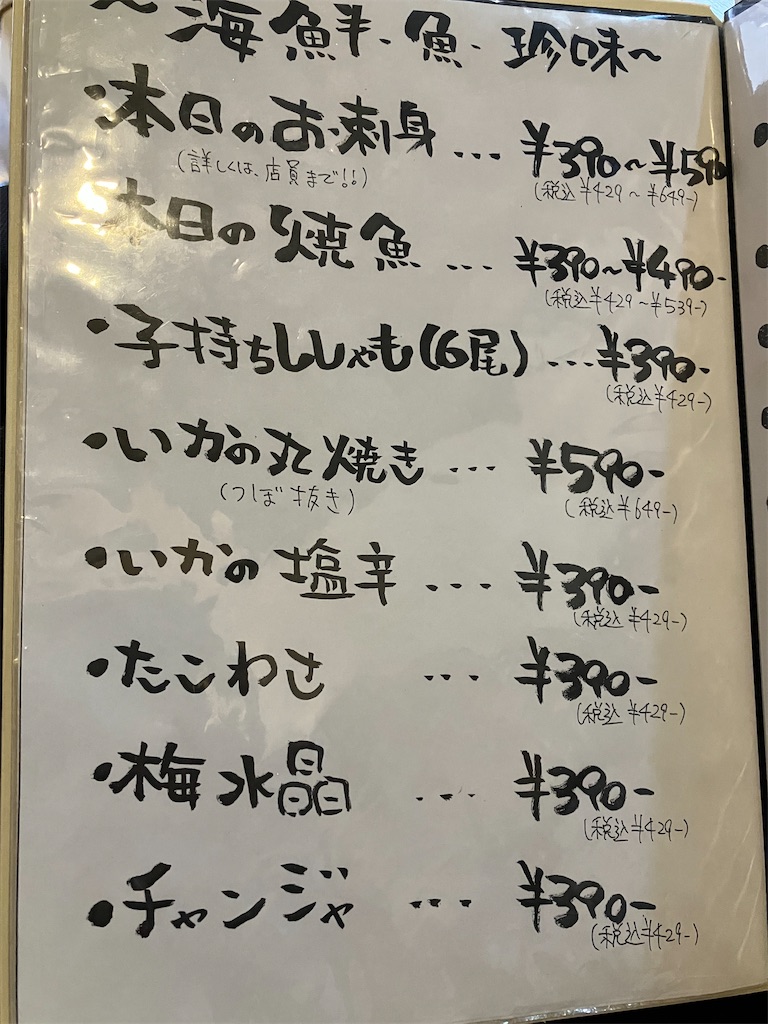 〜海鮮・魚・珍味〜
・本日のお刺身 … ¥390〜¥590
(詳しくは、店員まで!!) (税込¥429〜¥649-)
本日の焼魚 … ¥390〜¥490-
(税込¥429〜¥539-)
・子持ちししゃも(6尾) … ¥390-
(税込¥429-)
・いかの丸焼き … ¥590-
(つぼ抜き) (税込¥649-)
・いかの塩辛 … ¥390-
(税込¥429-)
・たこわさ … ¥390-
(税込¥429-)
・梅水晶 … ¥390-
(税込¥429-)
・チャンジャ … ¥390-
(税込¥429-)